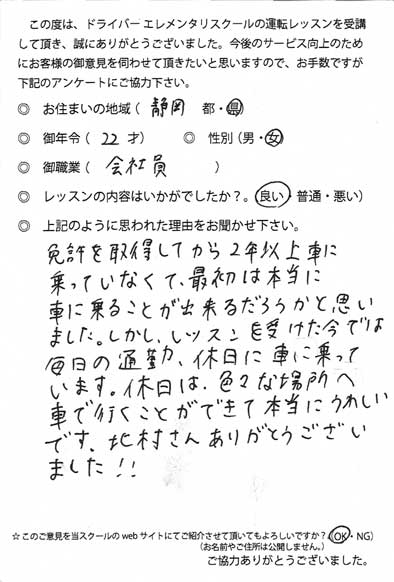 この度は、ドライバー エレメンタリスクールの運転レッスンを受講
して頂き、誠にありがとうございました。今後のサービス向上のため
にお客様の御意見を伺わせて頂きたいと思いますので、お手数ですが
下記のアンケートにご協力下さい。
◎ お住まいの地域( 静岡 都・県)
◎ 御年令( 22 才) ◎ 性別(男・女)
◎ 御職業( 会社員 )
◎ レッスンの内容はいかがでしたか？。(良い・普通・悪い)
◎ 上記のように思われた理由をお聞かせ下さい。
免許を取得してから2年以上車に
乗っていなくて、最初は本当に
車に乗ることが出来るだろうかと思い
ました。しかし、レッスンを受けた今では
毎日の通勤、休日に車に乗って
います。休日は、色々な場所へ
車で行くことができて本当にうれしい
です、北村さんありがとうござい
ました!!
☆このご意見を当スクールの web サイトにてご紹介させて頂いてもよろしいですか？(OK・NG)
(お名前やご住所は公開しません。)
ご協力ありがとうございました。